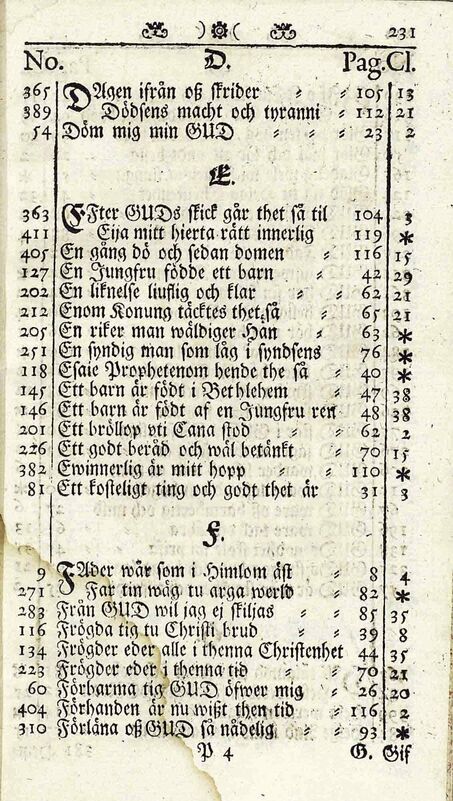 )( 231
No. D. Pag. Cl.
365 DAgen ifrån oß skrider 105 13
389 Dödsens macht och tyranni 112 21
54 Döm mig min GUD 23 2
E.
363 EFter GUDs skick går thet så til 104 3
411 Eija mitt hierta rätt innerlig 119 *
405 En gång dö och sedan domen 116 15
127 En Jungfru födde ett barn 42 29
202 En liknelse liuflig och klar 62 21
212 Enom Konung täcktes thet så 65 21
205 En riker man wäldiger Han 63 *
251 En syndig man som låg i syndsens 76 *
118 Esaie Prophetenom hende the så 40 *
145 Ett barn är födt i Bethlehem 47 38
146 Ett barn är födt af en Jungfru ren 48 38
201 Ett bröllop vti Cana stod 62 2
226 Ett godt beråd och wäl betänkt 70 15
382 Ewinnerlig är mitt hopp 110 *
81 Ett kosteligt ting och godt thet är 31 3
F.
9 FAder wår som i Himlom äst 8 4
271 Far tin wäg tu arga werld 82 *
283 Från GUD wil jag ej skiljas 85 35
116 Frögda tig tu Christi brud 39 8
134 Frögder eder alle i thenna Christenhet 44 35
223 Frögder eder i thenna tid 70 21
60 Förbarma tig GUD öfwer mig 26 20
404 Förhanden är nu wißt then tid 116 2
310 Förläna oß GUD så nådelig 93 *
P 4 G. Gif